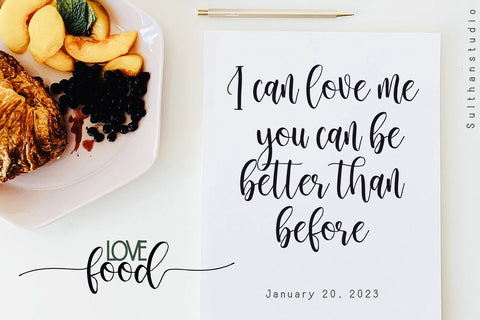 I can love me
you can be
better than
before
January 20, 2023
LOVE
food
Sulthanstudio